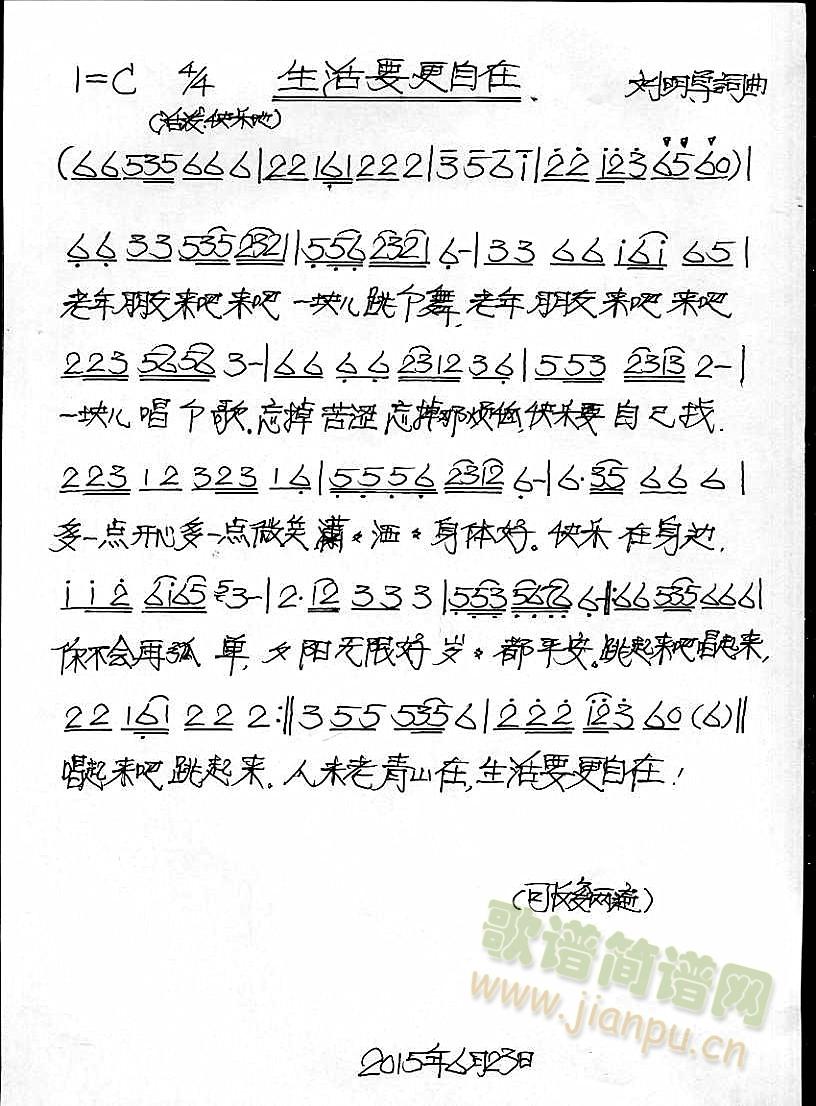 1=C 4/4 生活要更自在 刘明导詞曲
(活泼.快乐地)
(6 6 5 3 5 6 6 6 | 2 2 1 6 1 2 2 2 | 3 5 6 i | 2 2 i 2 3 6 5 6 0) |
6 6 3 3 5 3 5 2 3 2 1 | 5 5 6 2 3 2 1 6 - | 3 3 6 6 i 6 i 6 5 |
老年朋友来吧来吧 一块儿跳个舞,老年朋友来吧来吧
2 2 3 5 6 5 6 3 - | 6 6 6 6 2 3 1 2 3 6 | 5 5 3 2 3 1 3 2 - |
一块儿唱个歌.忘掉苦涩忘掉那烦恼,快乐要自己找.
2 2 3 1 2 3 2 3 1 6 | 5 5 5 6 2 3 1 2 6 - | 6 · 3 5 6 6 6 |
多一点开心多一点微笑潇洒身体好。快乐在身边,
i i 2 6 i 6 5 5 3 - | 2 · 1 2 3 3 3 | 5 5 3 5 6 7 6 6 - ‖: 6 6 5 3 5 6 6 6 |
你不会再孤单,夕阳无限好岁都平安。跳起来吧唱起来,
2 2 1 6 1 2 2 2 :‖ 3 5 5 5 3 5 6 | 2 2 2 i 2 3 6 0 (6) ‖
唱起来吧跳起来。人未老青山在,生活要更自在!
(可反复两遍)
歌谱简谱网
www.jianpu.cn
2015年6月23日